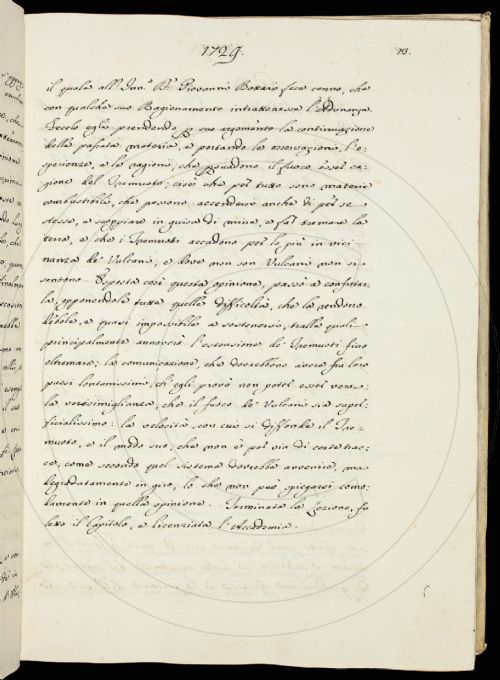 1729. 19.
il quale all' Inn.º Rº Giovanni Bottari fece cenno, che
con qualche suo Ragionamento intrattenesse l'Adunanza.
Fecelo egli prendendo p suo argomento la continuazione
della passata materia, e portando le osservazioni, l'e-
sperienze, e le ragioni, che psuadono il fuoco esser ca-
gione del Tremuoto; cioè che per tutto sono materie
combustibili, che possono accendersi anche di per se
stesse, e scoppiare in guisa di mine, e far tremare la
terra, e che i Tremuoti accadono per lo più in vici-
nanza de' Vulcani, e dove non son Vulcani non si
sentono. Esposta così questa opinione, passò a confutar-
la opponendole tutte quelle difficoltà, che la rendono
debole, e quasi impossibile a sostenersi, tralle quali
principalmente annoverò l'estensione de' Tremuoti fino
oltremare; la comunicazione, che dovrebbono avere fra loro
paesi lontanissimi, ch' egli provò non poter esser vera:
la verisimiglianza, che il fuoco de' Vulcani sia super-
ficialissimo: la velocità, con cui si diffonde il Tre-
muoto, e il modo suo, che non è per via di certe trac-
ce, come secondo quel sistema dovrebbe avvenire, ma
degradatamente in giro, lo che non può spiegarsi como-
damente in quella opinione. Terminata la Lezione, fu
letto il Capitolo, e licenziata l'Accademia.